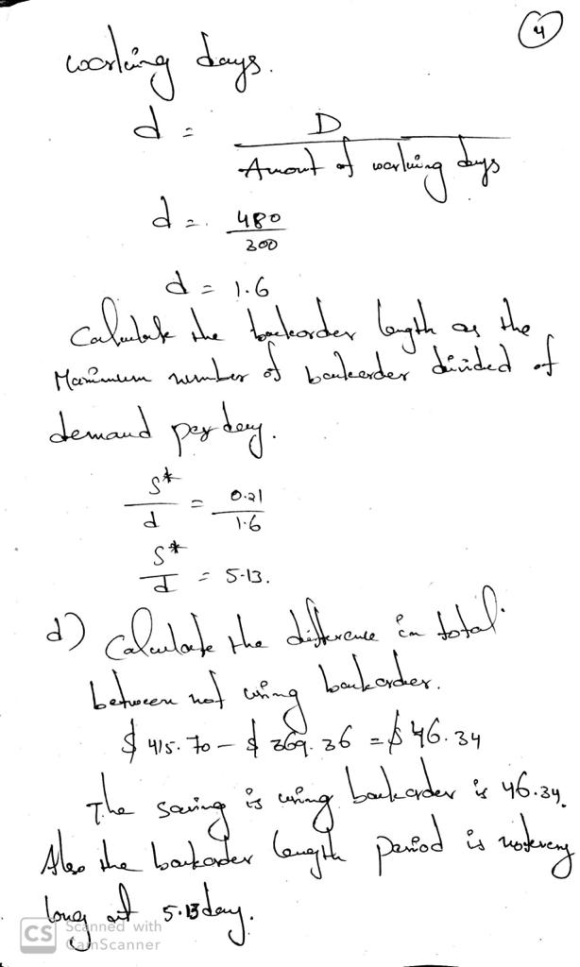 4
working days.
d = D
Amount of working days
d = 480
300
d = 1.6
Calculate the backorder length as the
Maximum number of backorder divided of
demand per day.
S* / d = 0.21 / 1.6
S* / d = 5.13.
d) Calculate the difference in total
between not using backorder.
$ 415.70 - $ 369.36 = $ 46.34
The saving is using backorder is 46.34.
Also the backorder length period is not every
long at 5.13 day.
CS Scanned with
CamScanner